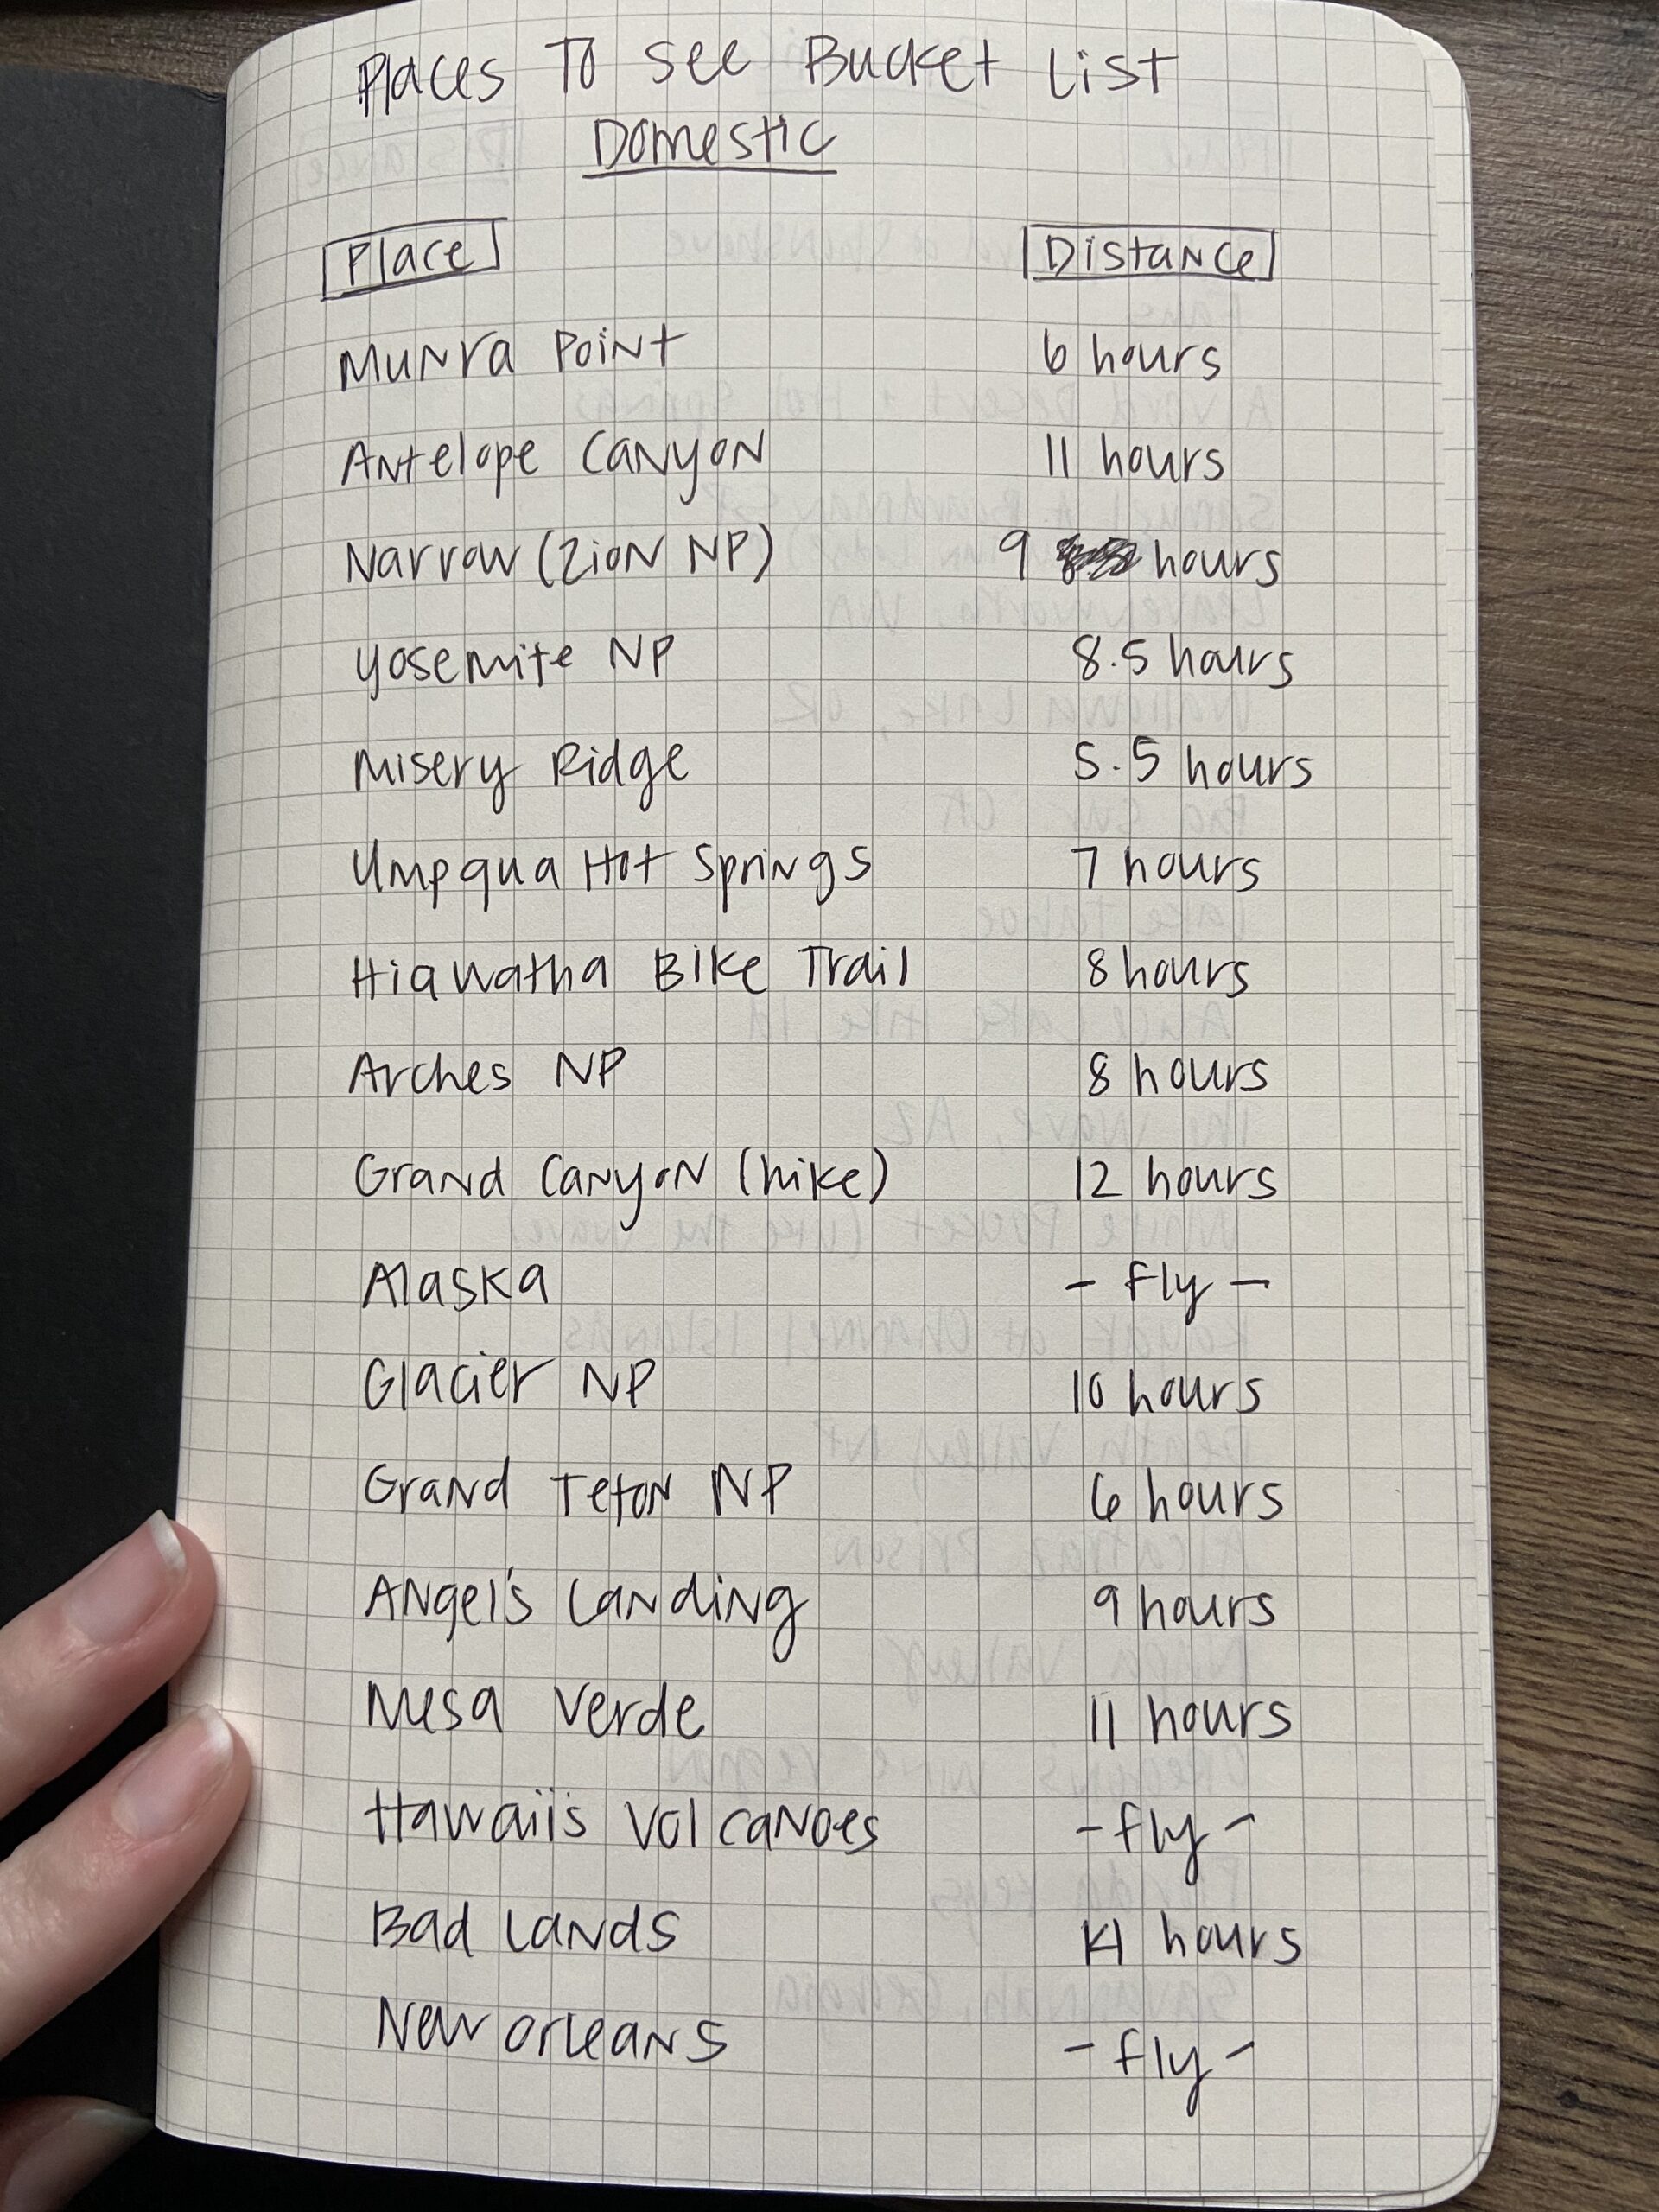 Places To see Bucket List
Domestic
Place Distance
Munra Point 6 hours
Antelope Canyon 11 hours
Narrow (Zion NP) 9 hours
Yosemite NP 8.5 hours
Misery Ridge 5.5 hours
Umpqua Hot Springs 7 hours
Hiawatha Bike Trail 8 hours
Arches NP 8 hours
Grand Canyon (hike) 12 hours
Alaska - fly -
Glacier NP 10 hours
Grand Teton NP 6 hours
Angel's Landing 9 hours
Mesa Verde 11 hours
Hawaii's Volcanoes - fly -
Bad Lands 14 hours
New Orleans - fly -